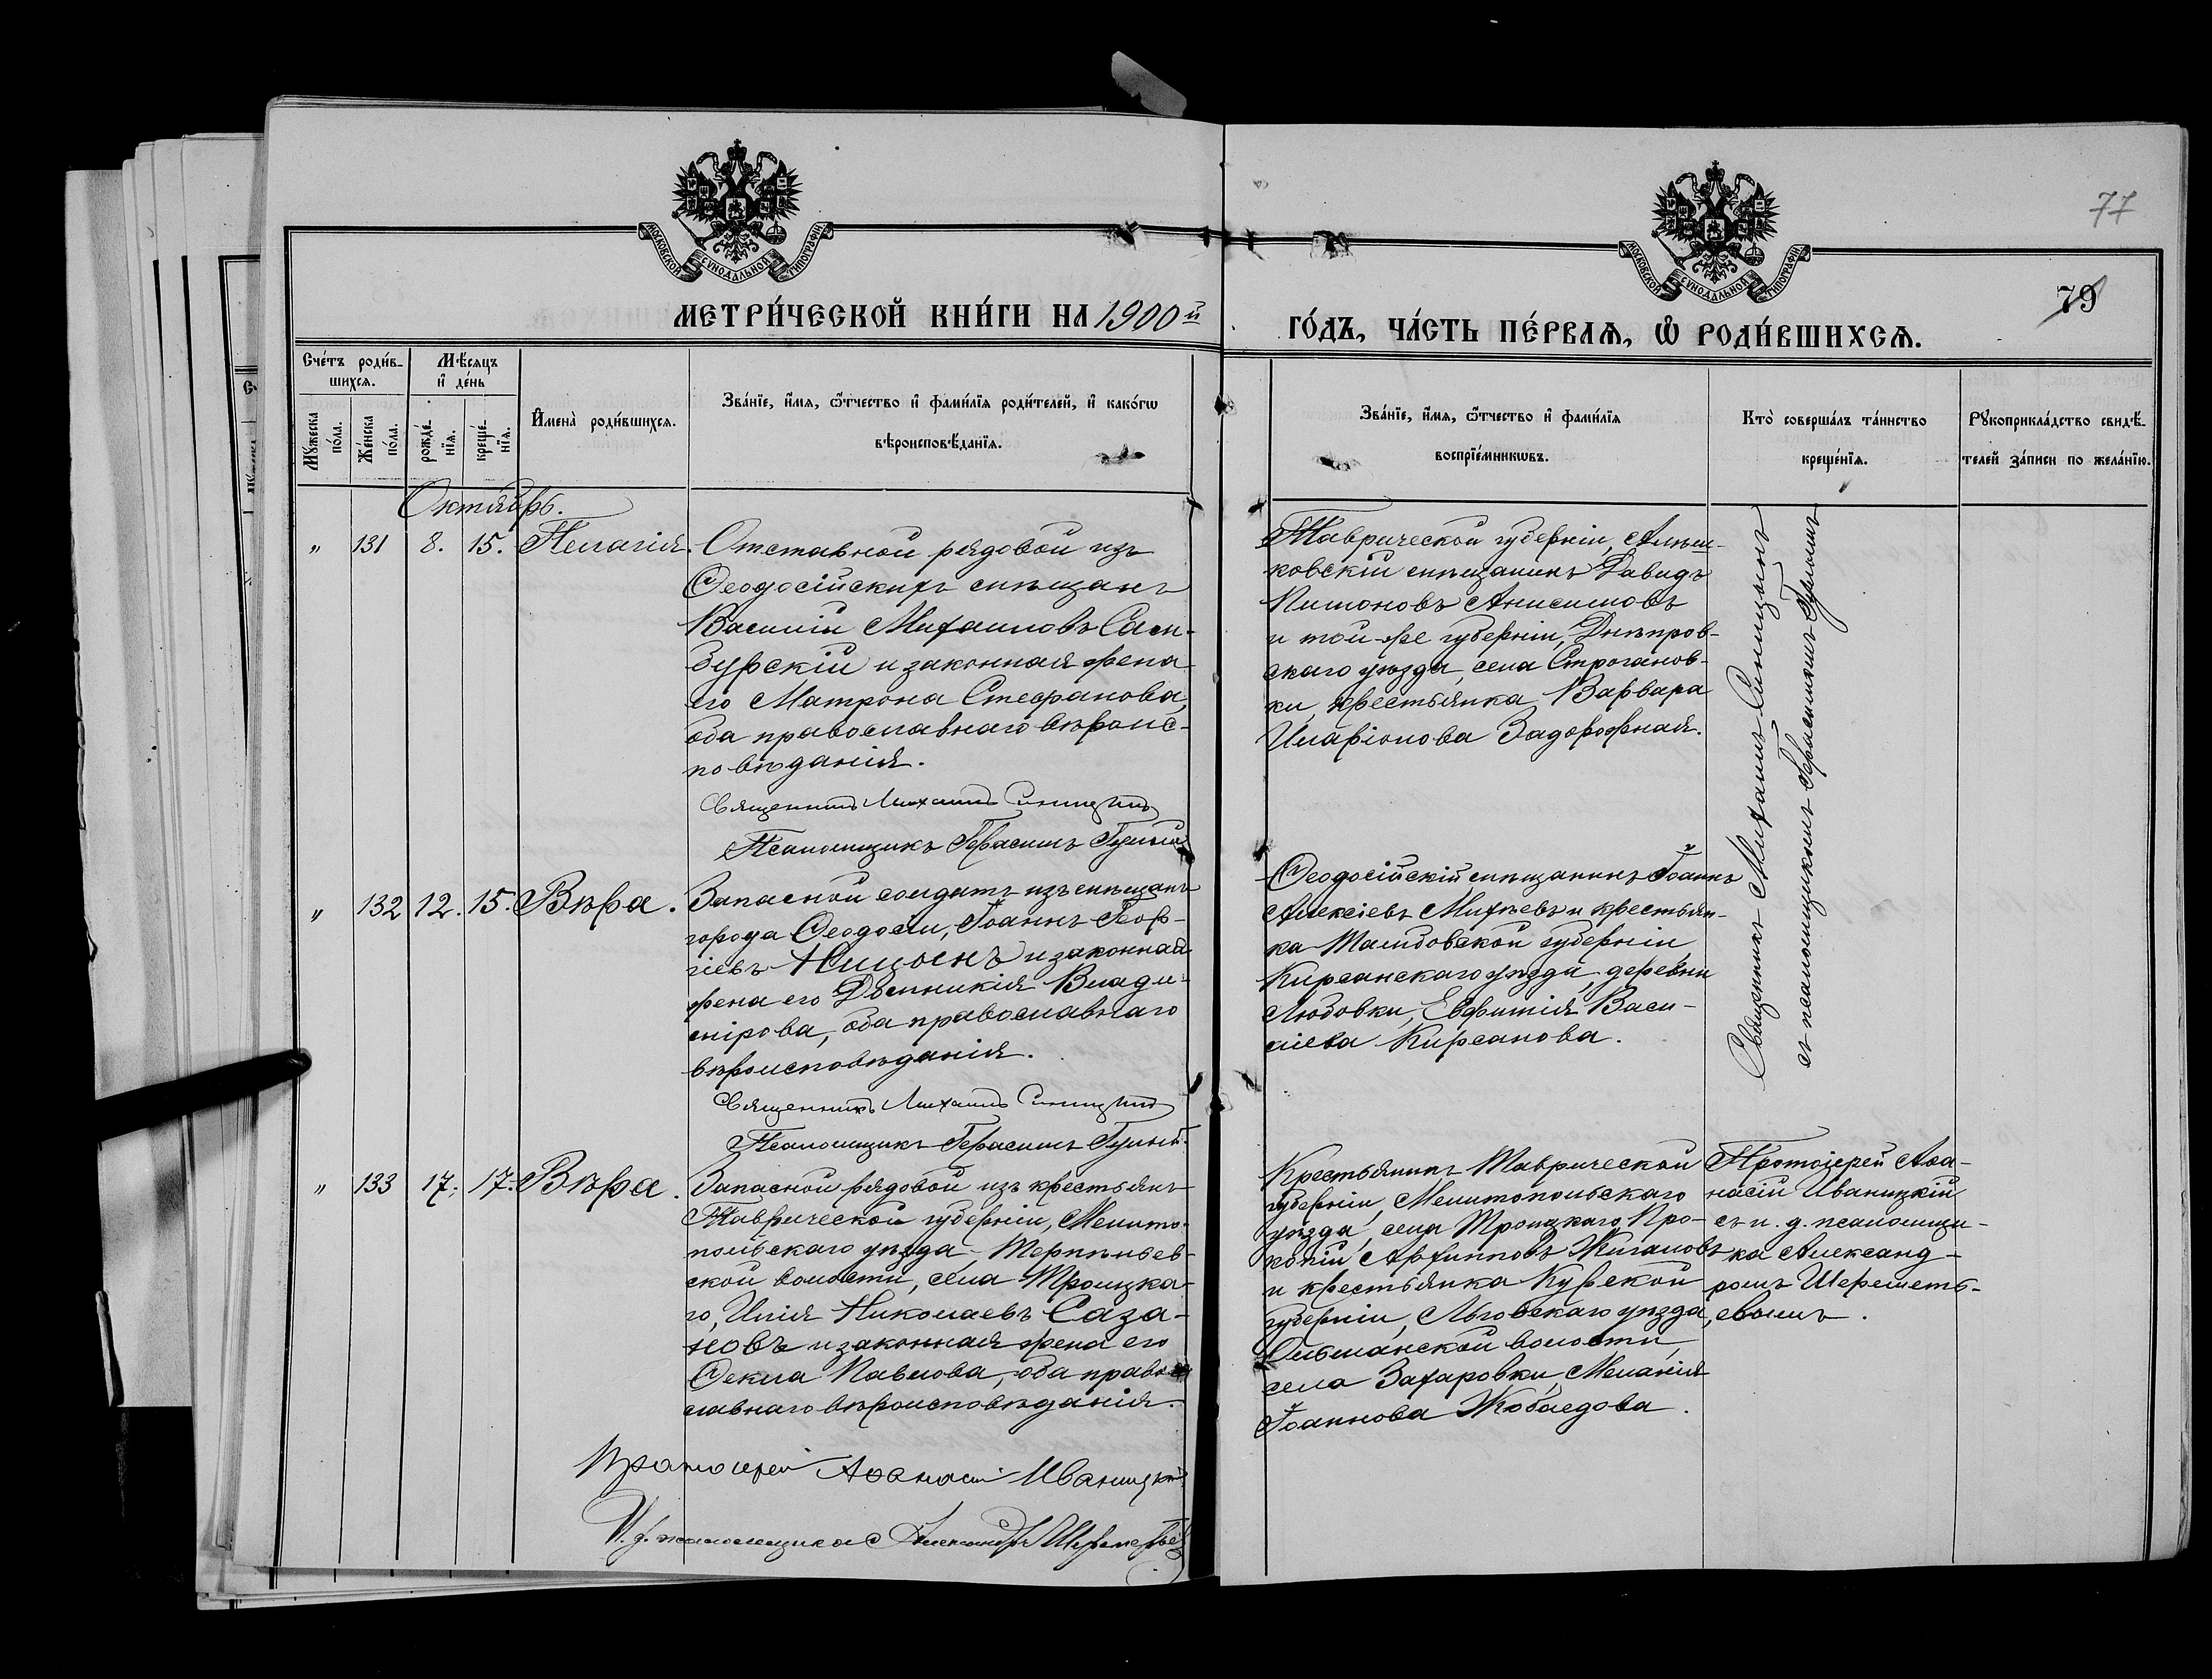 77
79
МОСКОВСКОЙ СѴНОДАЛЬНОЙ ТИПОГРАФІИ
МОСКОВСКОЙ СѴНОДАЛЬНОЙ ТИПОГРАФІИ
МЕТРИ́ЧЕСКОЙ КНИ́ГИ НА 1900й
ГО́ДЪ, ЧА́СТЬ ПЕ́РВАѦ, Ѽ РОДИ́ВШИХСѦ.
Сче́тъ роди́в-
шихсѧ.
Мѣ́сѧцъ
и҆ де́нь
Мꙋ́жеска
по́ла.
Же́нска
по́ла.
рожде́-
нїѧ.
креще́-
нїѧ.
И҆мена̀ роди́вшихсѧ.
Зва́нїе, и҆́мѧ, ѻ҆́тчество и҆ фами́лїѧ роди́телей, и҆ како́гѡ
вѣроисповѣ́данїѧ.
Зва́нїе, и҆́мѧ, ѻ҆́тчество и҆ фами́лїѧ
воспрїе́мникѡвъ.
Кто̀ соверша́лъ та́инство
креще́нїѧ.
Рꙋкоприкла́дство свидѣ́-
телей за́писи по жела́нїю.
Октябрь.
" 131 8. 15. Пелагія.
Отставной рядовой изъ
Ѳеодосійскихъ мѣщанъ
Василій Михаиловъ Сам-
бурскій и законная жена
его Матрона Стефанова,
оба православнаго вѣроис-
повѣданія.
Священникъ Михаилъ Синицынъ
Псаломщикъ Герасимъ
Таврической губерніи, Алеш-
ковскій мѣщанинъ Давидъ
Пимоновъ Анисимовъ
и той-же губерніи, Днѣпров-
скаго уѣзда, села Строганов-
ки, крестьянка Варвара
Иларіонова Задорожная.
Священникъ Михаилъ Синицынъ
съ псаломщикомъ Герасимомъ
" 132 12. 15. Вѣра.
Запасной солдатъ изъ мѣщанъ
города Ѳеодосіи, Іоаннъ Геор-
гіевъ и законная
жена его Домникія Влади-
мірова, оба православнаго
вѣроисповѣданія.
Священникъ Михаилъ Синицынъ
Псаломщикъ Герасимъ
Ѳеодосійскій мѣщанинъ Іоаннъ
Алексіевъ Михѣевъ и крестьян-
ка Тамбовской губерніи
Кирсанскаго уѣзда, деревни
Любовки, Евфимія Васи-
лиева Кирсанова.
" 133 17. 17. Вѣра.
Запасной рядовой изъ крестьянъ
Таврической губерніи, Мелито-
польскаго уѣзда, Терпѣньев-
ской волости, села Троицка-
го, Илія Николаевъ Саза-
новъ и законная жена его
Ѳекла Павлова, оба право-
славнаго вѣроисповѣданія.
Протоіерей Аѳанасій Иваницкій
И. д. псаломщика Александръ Шереметьевъ
Крестьянинъ Таврической
губерніи, Мелитопольскаго
уѣзда, села Троицкаго, Про-
копій Архипповъ Жигановъ
и крестьянка Курской
губерніи, Льговскаго уѣзда,
Ольшанской волости,
села Захаровки, Меланія
Іоаннова Жобаедова.
Протоіерей Аѳа-
насій Иваницкій
съ и. д. псаломщи-
ка Александ-
ромъ Шереметь-
евымъ.